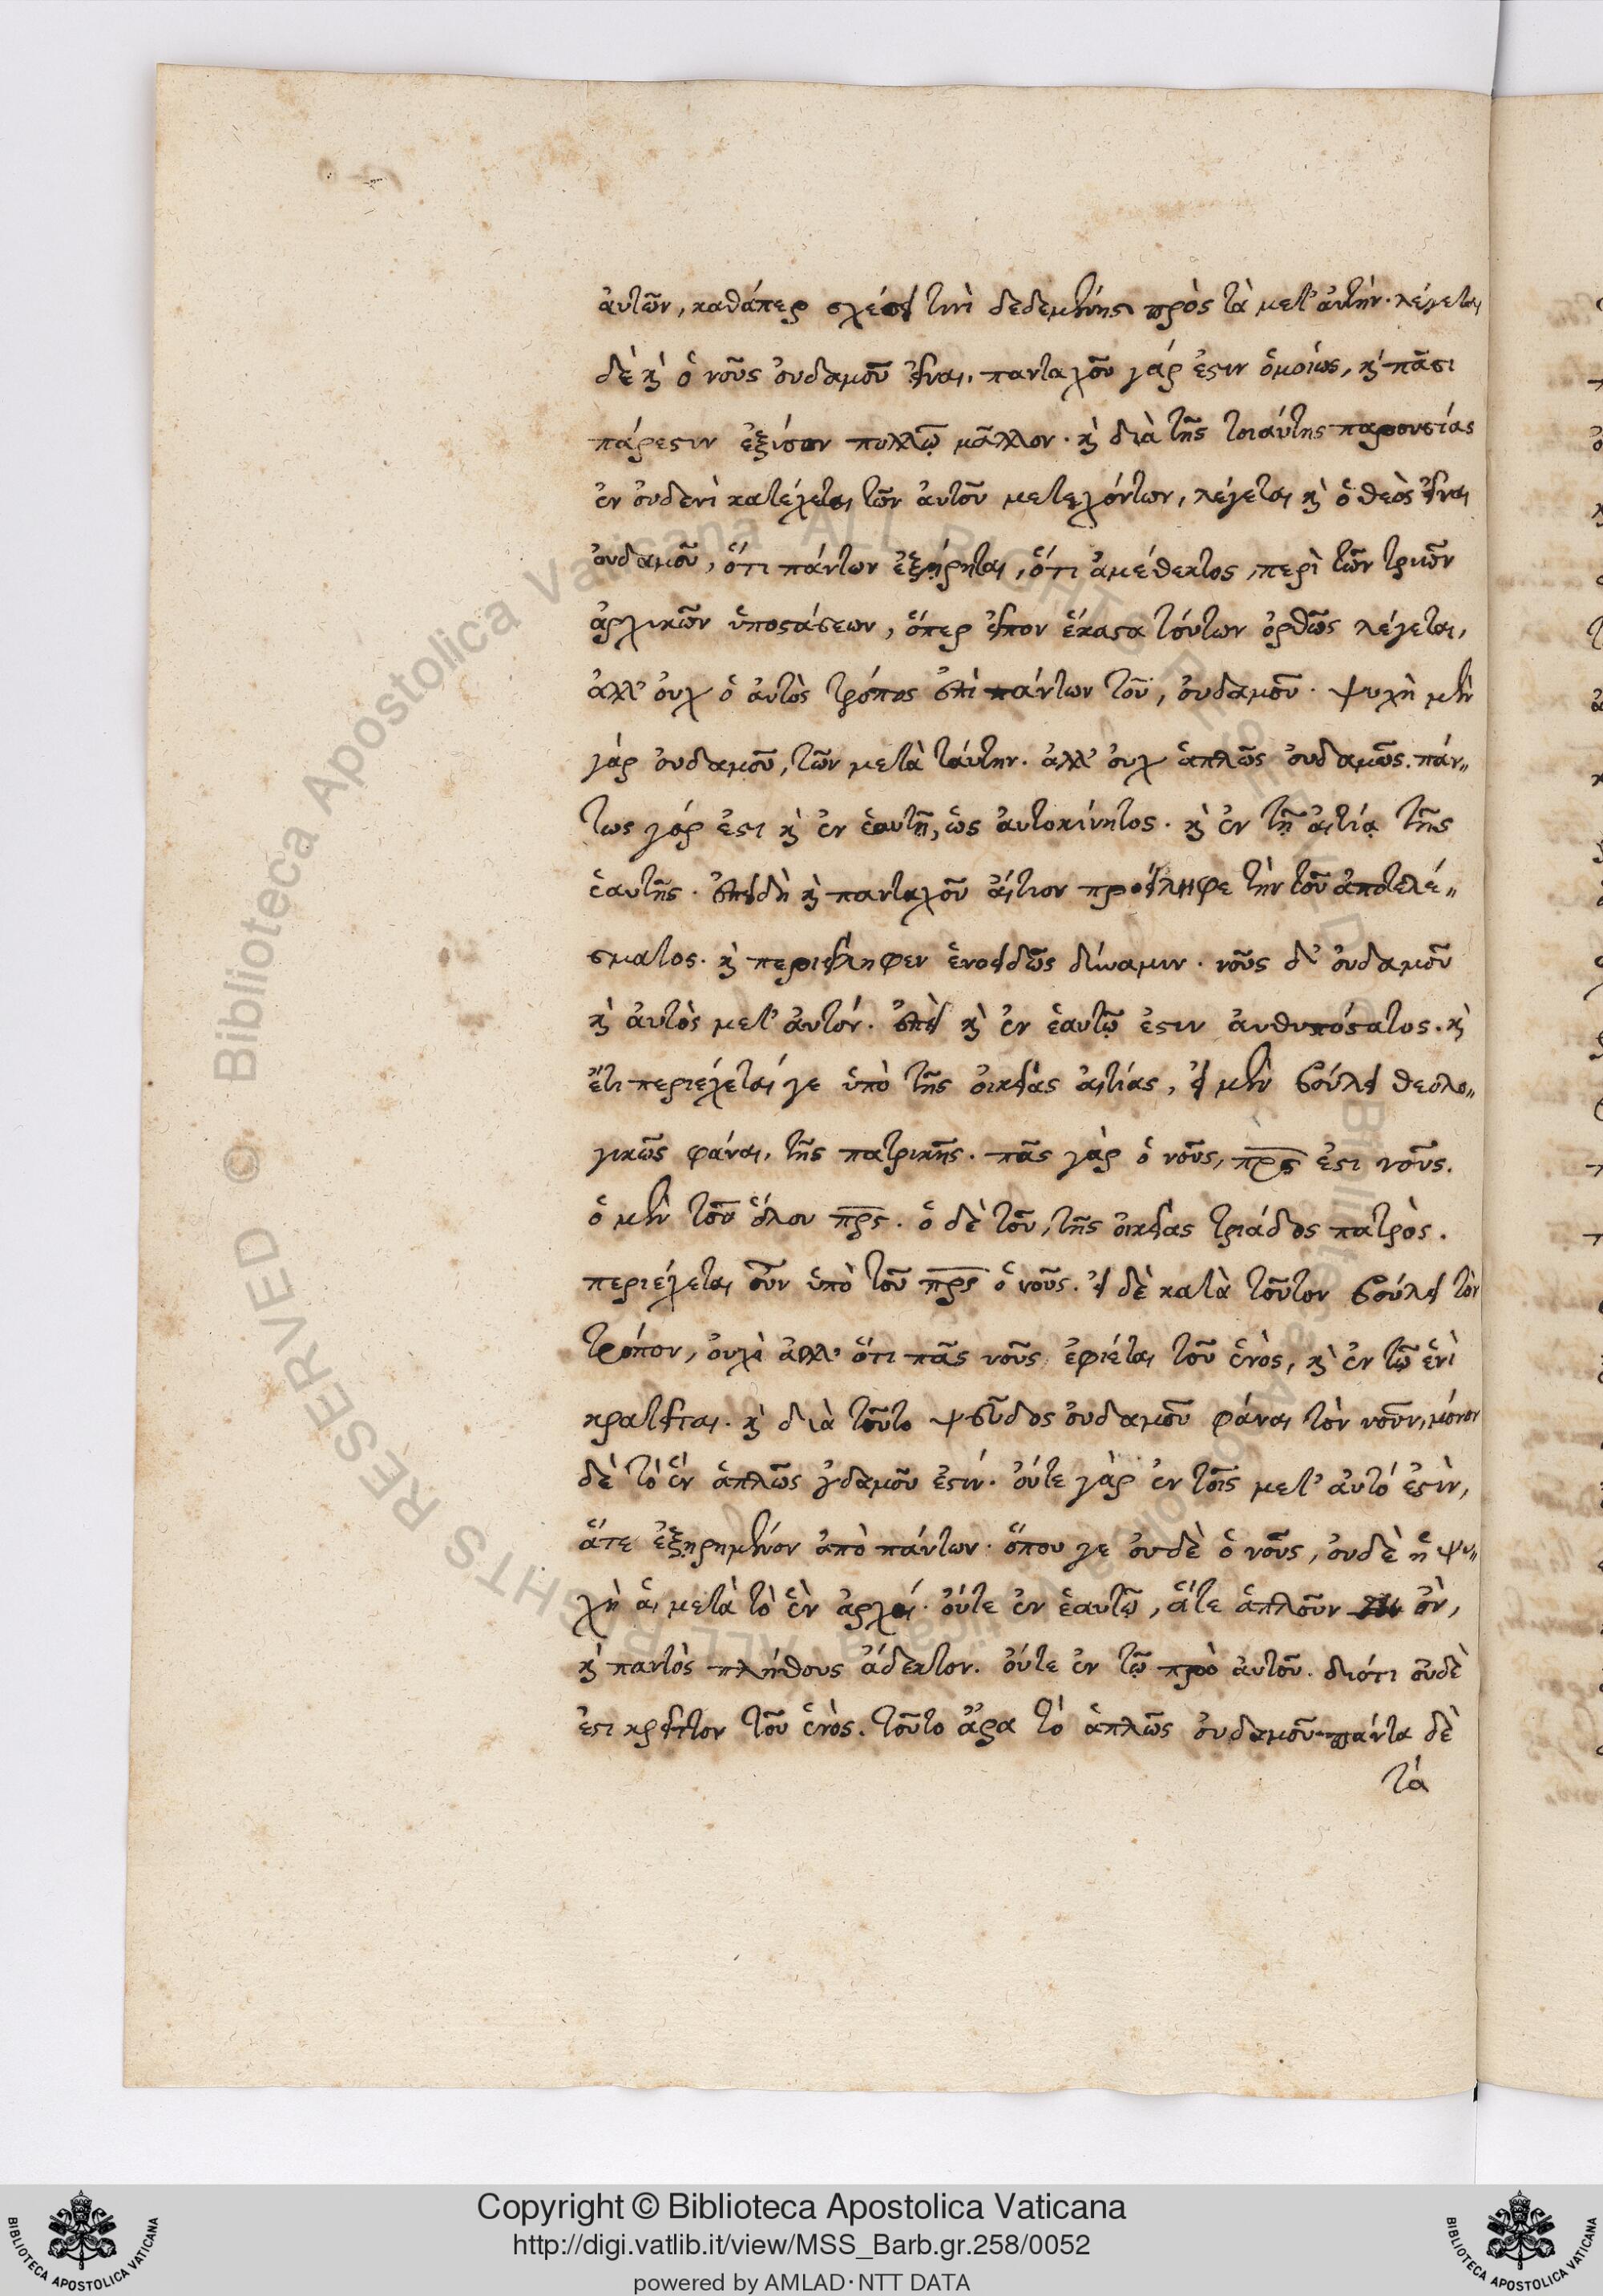 αὐτῶν, καθάπερ σχέσει τινὶ δεδεμένης πρὸς τὰ μετ' αὐτήν. λέγεται
δὲ κὶ ὁ νοῦς οὐδαμοῦ εἶναι, πανταχοῦ γάρ ἐστιν ὁμοίως, κὶ πᾶσι
πάρεστιν ἐξίσον πολλῷ μᾶλλον. κὶ διὰ τῆς τοιαύτης παρουσίας
ἐν οὐδενὶ κατέχεται τῶν αὐτοῦ μετεχόντων, λέγεται κὶ ὁ θεὸς εἶναι
οὐδαμοῦ, ὅτι πάντων ἐξῄρηται, ὅτι ἀμέθεκτος, περὶ τῶν τριῶν
ἀρχικῶν ὑποστάσεων, ὅπερ εἶπον ἕκαστα τούτων ὀρθῶς λέγεται,
ἀλλ' οὐχ ὁ αὐτὸς τρόπος ἐπὶ πάντων τοῦ, οὐδαμοῦ. ψυχὴ μὲν
γάρ οὐδαμοῦ, τῶν μετὰ ταύτην. ἀλλ' οὐχ ἁπλῶς οὐδαμῶς. πάν„
τως γάρ ἐστι κὶ ἐν ἑαυτῇ, ὡς αὐτοκίνητος. κὶ ἐν τῇ αἰτίᾳ τῆς
ἑαυτῆς. ἐπειδὴ κὶ πανταχοῦ αἴτιον προείληφε τὴν τοῦ ἀποτελέ„
σματος. κὶ περιείληφεν ἑνοειδῶς δύναμιν. νοῦς δ' οὐδαμοῦ
κὶ αὐτὸς μετ' αὐτόν. ἐπεὶ κὶ ἐν ἑαυτῷ ἐστιν ἀνθυπόστατος. κὶ
ἔτι περιέχεταί γε ὑπὸ τῆς οἰκείας αἰτίας, εἰ μὲν βούλει θεολο„
γικῶς φάναι, τῆς πατρικῆς. πᾶς γὰρ ὁ νοῦς, πρς ἐστι νοῦς.
ὁ μὲν τοῦ ὅλου πρς. ὁ δὲ τοῦ, τῆς οἰκείας τριάδος πατρὸς.
περιέχεται οὖν ὑπὸ τοῦ πρς ὁ νοῦς. εἰ δὲ κατὰ τοῦτον βούλει τὸν
τρόπον, οὐχὶ ἀλλ' ὅτι πᾶς νοῦς ἐφίεται τοῦ ἑνὸς, κὶ ἐν τῷ ἑνὶ
κρατεῖται. κὶ διὰ τοῦτο ψεῦδος οὐδαμοῦ φάναι τὸν νοῦν, μόνον
δὲ τὸ ἓν ἁπλῶς οὐδαμοῦ ἐστίν. οὔτε γὰρ ἐν τοῖς μετ' αὐτό ἐστὶν,
ἅτε ἐξῃρημένον ἀπὸ πάντων. ὅπου γε οὐδὲ ὁ νοῦς, οὐδὲ ἡ ψυ„
χὴ αἱ μετὰ τὸ ἓν ἀρχαί. οὔτε ἐν ἑαυτῷ, ἅτε ἁπλοῦν ὂν,
κὶ παντὸς πλήθους ἄδεκτον. οὔτε ἐν τῷ πρὸ αὐτοῦ. διότι οὐδὲ
ἐστι κρεῖττον τοῦ ἑνὸς. τοῦτο ἄρα τὸ ἁπλῶς οὐδαμοῦ πάντα δὲ
τὰ
Copyright © Biblioteca Apostolica Vaticana
http://digi.vatlib.it/view/MSS_Barb.gr.258/0052
powered by AMLAD·NTT DATA